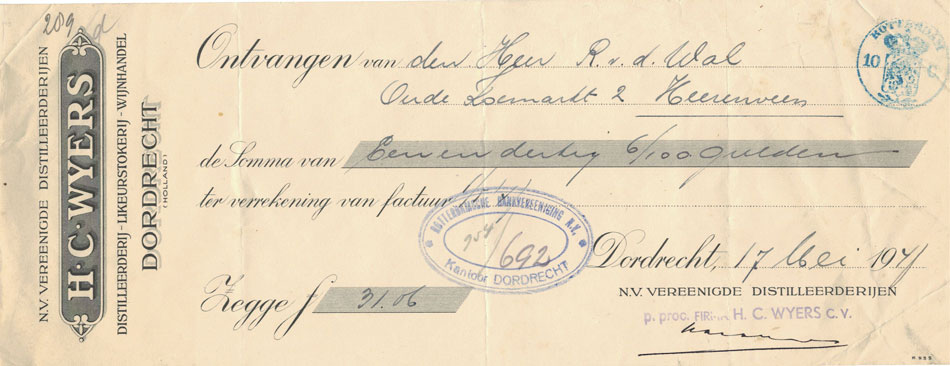 209
N.V. VEREENIGDE DISTILLEERDERIJEN
H. C. WYERS
DISTILLEERDERIJ - LIKEURSTOKERIJ - WIJNHANDEL
DORDRECHT
(HOLLAND)
Ontvangen van den Heer R. v. d. Wal
Oude Koemarkt 2 Heerenveen
ROTTERDAM
10 C.
de Somma van Een en dertig 6/100 Gulden
ter verrekening van factuur
ROTTERDAMSCHE BANKVEREENIGING N.V.
692
Kantoor DORDRECHT
Dordrecht, 17 Mei 1941
Zegge f 31.06
N.V. VEREENIGDE DISTILLEERDERIJEN
p. proc. FIRMA H. C. WYERS C.V.